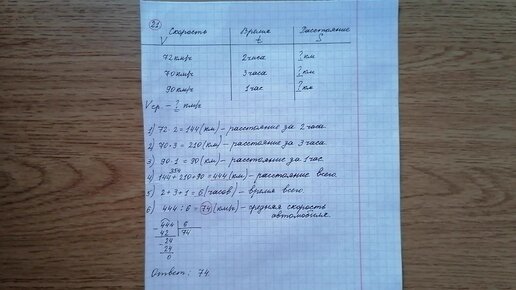 21
Скорость Время Расстояние
V t S
72 км/ч 2 часа ? км
70 км/ч 3 часа ? км
90 км/ч 1 час ? км
Vср. – ? км/ч
1) 72·2=144(км) – расстояние за 2 часа.
2) 70·3=210(км) – расстояние за 3 часа.
3) 90·1=90(км) – расстояние за 1 час.
354
4) 144+210+90=444(км) – расстояние всего.
5) 2+3+1=6(часов) – время всего.
6) 444:6=74(км/ч) – средняя скорость
автомобиля.
444 6
42 74
24
24
0
Ответ: 74.